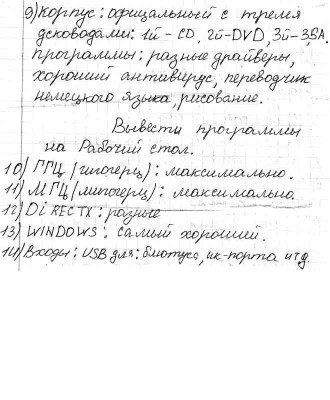 9) Корпус: офицальный с тремя
дсководами: 1й - CD, 2й-DVD, 3й-3,5А.
программы: разные драйверы,
хороший антивирус, переводчик
немецкого языка, рисование.
Вывести программы
на Рабочий стол.
10) ГГЦ (гигогерц): максимально.
11) МГЦ (мигогерц): максимально.
12) DiRECTX: разные
13) WINDOWS: самый хороший.
14) Входы: USB для: блютуса, ик-порта итд.